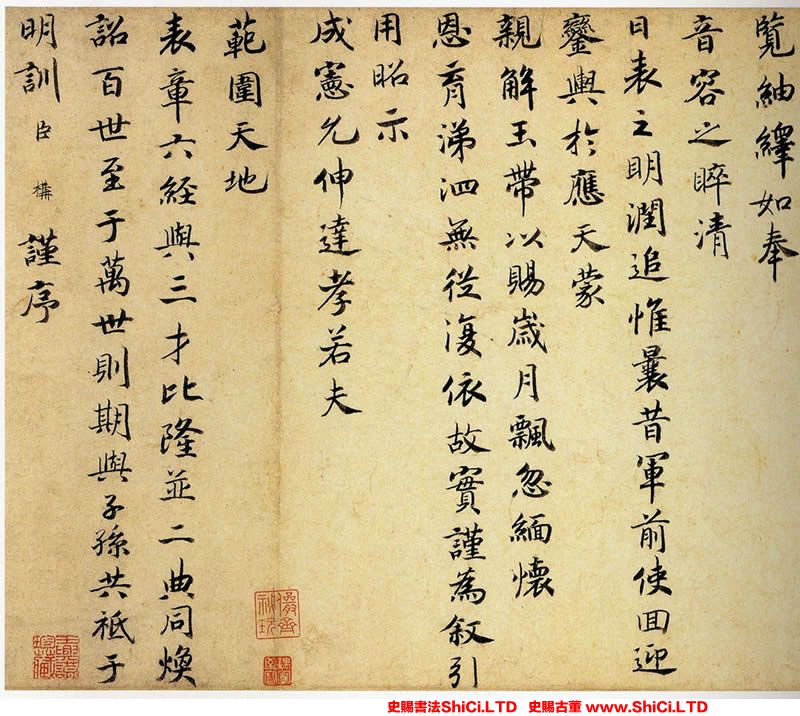 覽紬繹如奉
音容之睟清
日表之明潤追惟曩昔軍前使回迎
鑾輿於應天蒙
親解玉帶以賜歲月飄忽緬懷
恩育涕泗無從復依故實謹為叙引
用昭示
成憲允伸達孝若夫
範圍天地
表章六經與三才比隆並二典同煥
詔百世至于萬世則期與子孫共祗于
明訓臣構謹序
史賜書法ShiCi.LTD 史賜古董 www.ShiCi.LTD